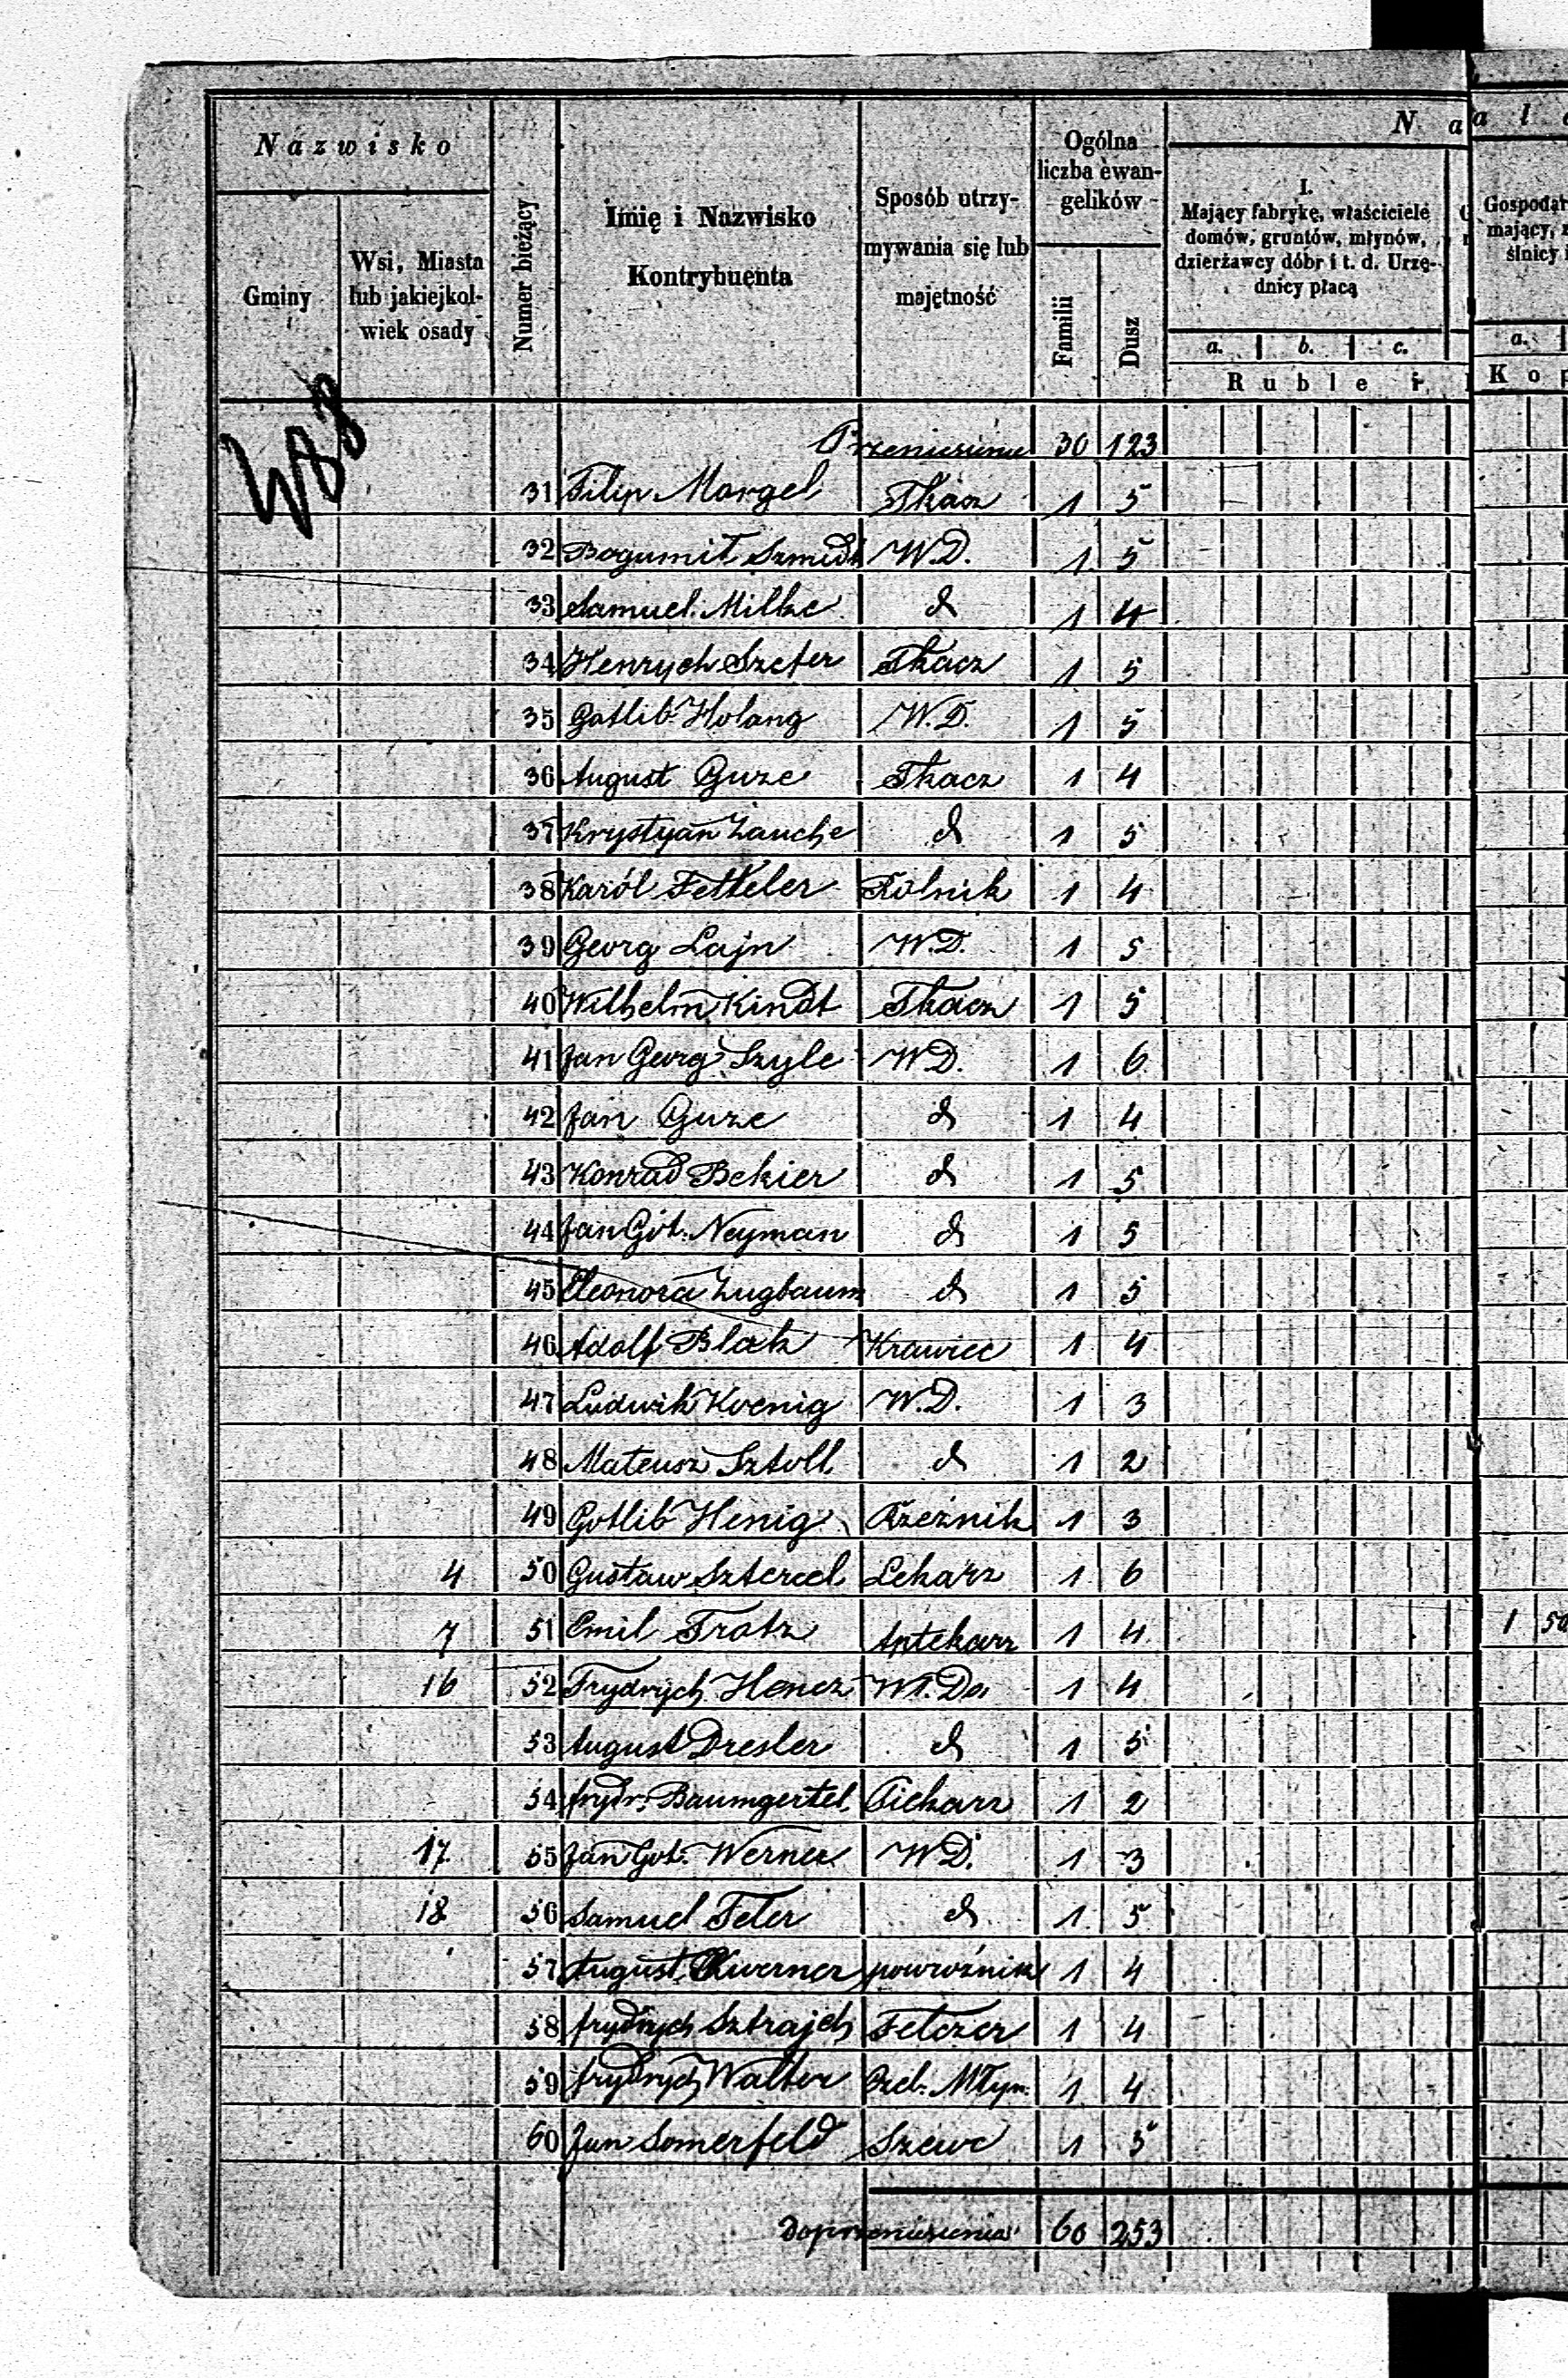 Nazwisko
Gminy
Wsi, Miasta
lub jakiejkol-
wiek osady
Numer bieżący
Imię i Nazwisko
Kontrybuenta
Sposób utrzy-
mywania się lub
majętność
Ogólna
liczba ewan-
gelików
Familii
Dusz
N a
I.
Mający fabrykę, właściciele
domów, gruntów, młynów,
dzierżawcy dóbr i t. d. Urzę-
dnicy płacą
a. b. c.
Ruble
a ł
Gospodar
mający,
ślnicy
a.
Kop
Przeniesienie 30 123
31 Filip Margel Tkacz 1 5
32 Bogumił Szmidt W.D. 1 5
33 Samuel Milke d 1 4
34 Henrych Szefer Tkacz 1 5
35 Gotlib Holang W.D. 1 5
36 August Guze Tkacz 1 4
37 Krystyan Zauche d 1 5
38 Karól Fetkeler Rolnik 1 4
39 Georg Lajn W.D. 1 5
40 Wilhelm Kindt Tkacz 1 5
41 Jan Georg Szyle W.D. 1 6
42 Jan Guze d 1 4
43 Konrad Bekier d 1 5
44 Jan Got. Neyman d 1 5
45 Eleonora Zugbaum d 1 5
46 Adolf Blak Krawiec 1 4
47 Ludwik Koenig W.D. 1 3
48 Mateusz Sztoll d 1 2
49 Gotlib Henig Rzeźnik 1 3
4 50 Gustaw Sztercel Lekarz 1 6
7 51 Emil Tratz Aptekarz 1 4 1 50
16 52 Frydrych Hencz Wł. Do 1 4
53 August Dresler d 1 5
54 frydr. Baumgertel Piekarz 1 2
17 55 Jan Got. Werner W.D. 1 3
18 56 Samuel Feter d 1 5
57 August Kwerner powroźnik 1 4
58 frydrych Sztrajch Felczer 1 4
59 frydrych Walter Czel. Młyn. 1 4
60 Jan Somerfeld Szewc 1 5
Do przeniesienia 60 253